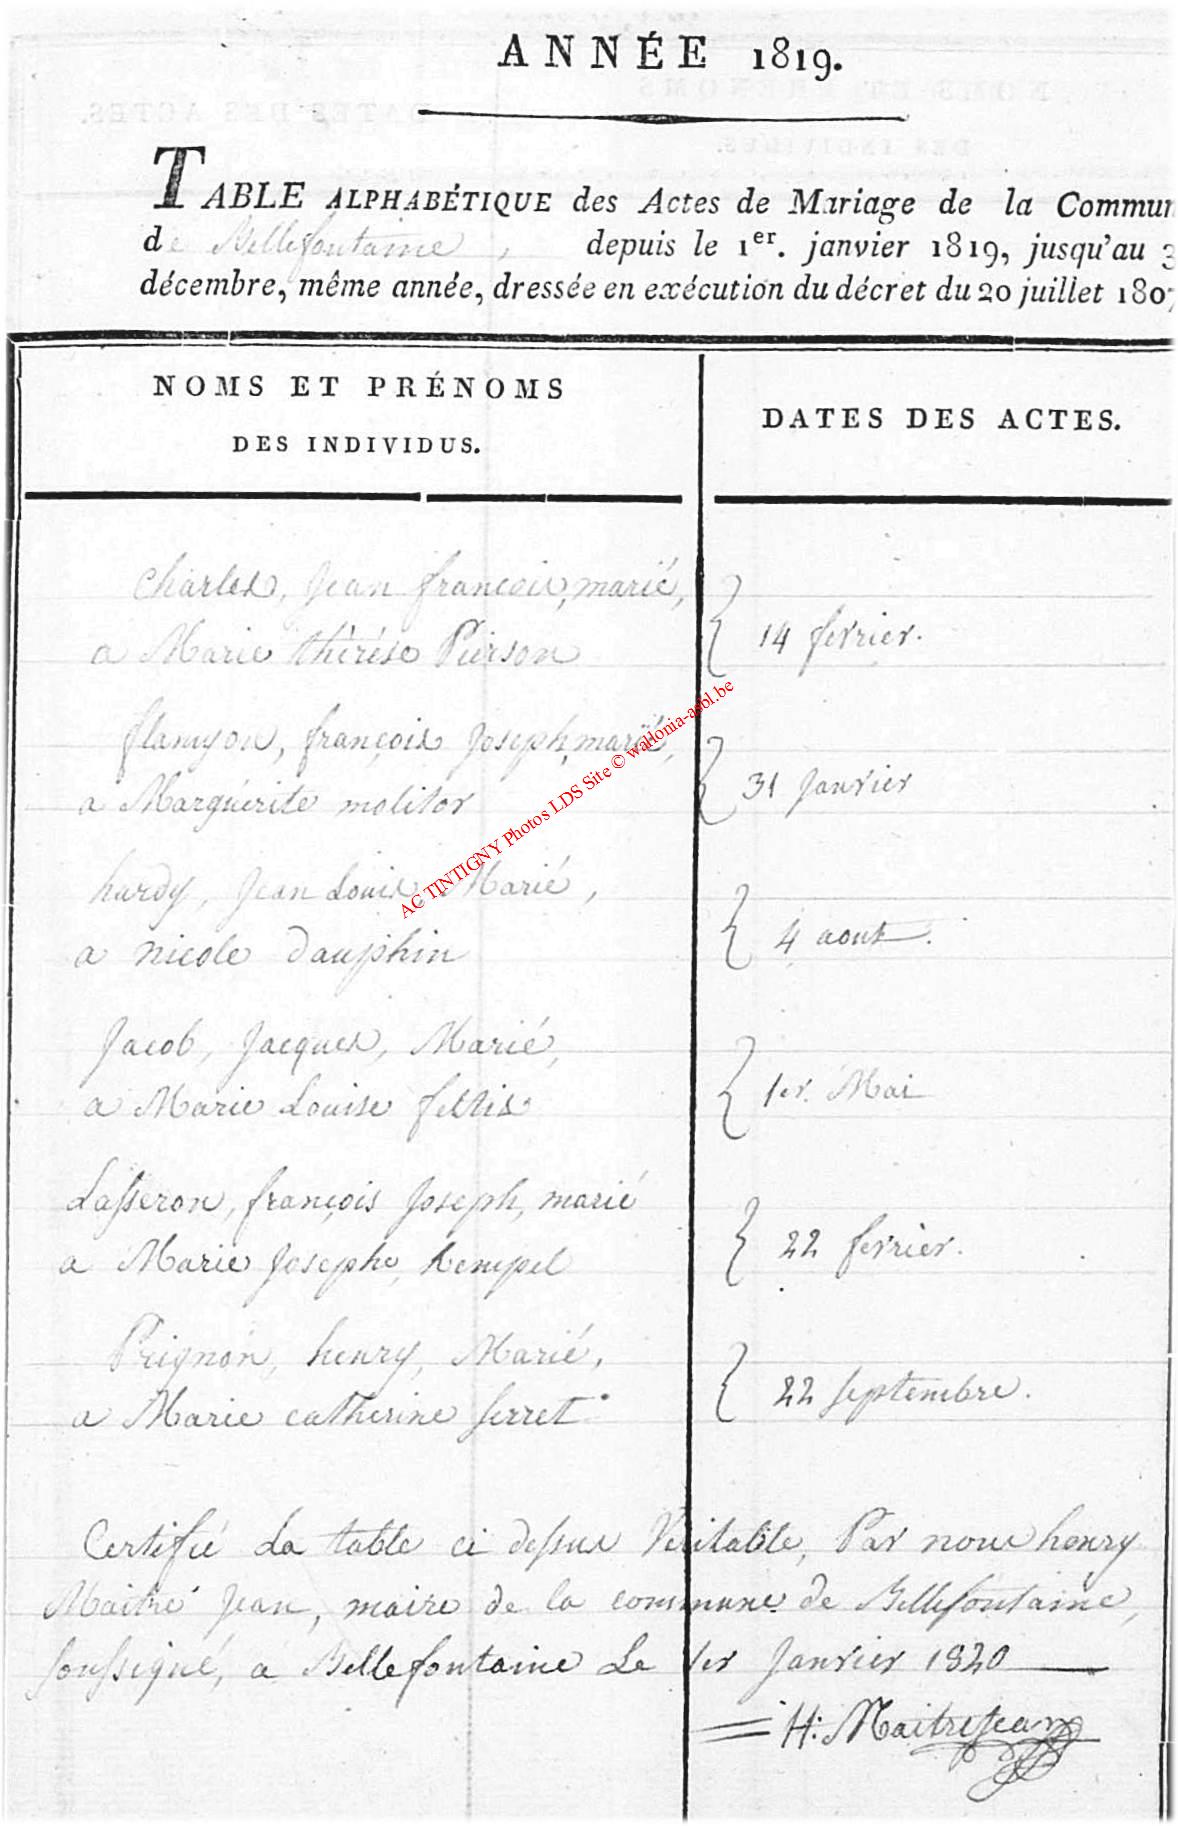 ANNÉE 1819.
TABLE ALPHABÉTIQUE des Actes de Mariage de la Commun
de Bellefontaine, depuis le 1er. janvier 1819, jusqu'au 3
décembre, même année, dressée en exécution du décret du 20 juillet 1807
NOMS ET PRÉNOMS
DES INDIVIDUS.
DATES DES ACTES.
Charles, Jean françois, marié,
a Marie thérése Pierson
14 fevrier.
françois Joseph, marié,
a Marguérite molitor
31 Janvier
hardy, Jean Louis, Marié,
a nicole dauphin
4 aout.
Jacob, Jacques, Marié,
a Marie Louise
1er. Mai
Lasseron, françois Joseph, marié
a Marie Josephe hempel
22 fevrier.
Prignon, henry, Marié,
a Marie catherine ferret
22 septembre.
Certifié La table ci dessus Veritable, Par nous henry
Maitre Jean, maire de la commune de Bellefontaine,
soussigné, a Bellefontaine Le 1er Janvier 1820
H: MaitreJean
AC TINTIGNY Photos LDS Site © wallonia-asbl.be